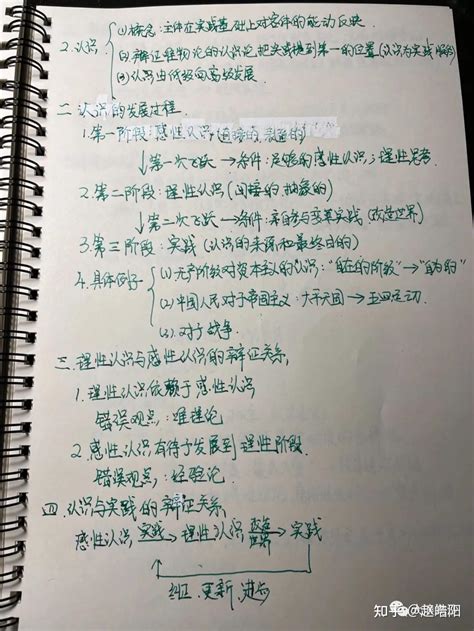 2.认识
(1)概念:主体在实践基础上对客体的能动反映.
(2)辩证唯物论的认识论把实践提到第一的位置(认识为实践服务)
(3)认识由低级向高级发展.
二.认识的发展过程.
1.第一阶段:感性认识(直接的,表面的)
↓第一次飞跃→条件:足够的感性认识;理性思考.
2.第二阶段:理性认识(间接的,抽象的)
↓第二次飞跃→条件:亲自参与变革实践.(改造世界)
3.第三阶段:实践(认识的来源和最终目的)
4.具体例子
(1)无产阶级对资本主义的认识:"自在的阶段"→"自为的"
(2)中国人民对于帝国主义:太平天国→五四运动.
(3)对于战争.
三.理性认识与感性认识的辩证关系,
1.理性认识依赖于感性认识
错误观点:唯理论
2.感性认识有待于发展到理性阶段.
错误观点:经验论.
四.认识与实践的辩证关系,
感性认识 实践→ 理性认识 改造世界→ 实践
纠正.更新.进步
知乎 @赵皓阳